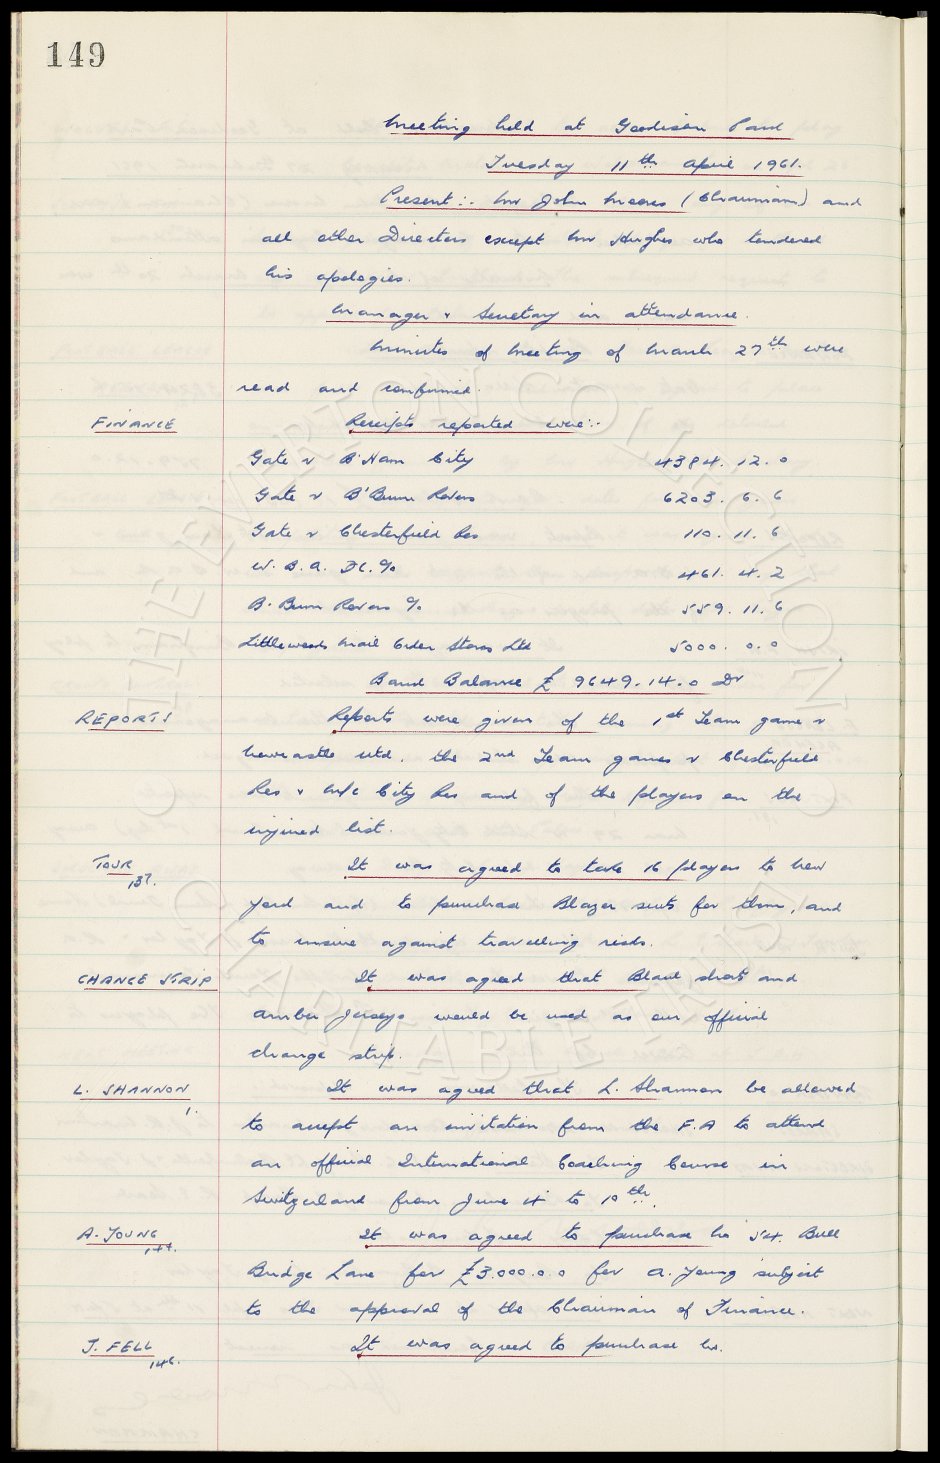 149
Meeting held at Goodison Park
Tuesday 11th April 1961.
Present:- Mr John Moores (Chairman) and
all other Directors except Mr Hughes who tendered
his apologies.
Manager & Secretary in attendance.
Minutes of Meeting of March 27th were
read and confirmed.
FINANCE Receipts reported were:-
Gate v B'Ham City 4384. 12. 0
Gate v B'Burn Rovers 6203. 6. 6
Gate v Chesterfield Res 110. 11. 6
W. B. A. F.C. % 461. 4. 2
B. Burn Rovers % 559. 11. 6
Littlewoods Mail Order Stores Ltd 5000. 0. 0
Bank Balance £ 9649. 14. 0 Dr
REPORTS Reports were given of the 1st Team game v
Newcastle Utd. the 2nd Team games v Chesterfield
Res & M/c City Res and of the players on the
injured list.
TOUR It was agreed to take 16 players to New
137. York and to purchase Blazer suits for them, and
to insure against travelling risks.
CHANGE STRIP It was agreed that Black shorts and
amber jerseys would be used as our official
change strip.
L. SHANNON It was agreed that L. Shannon be allowed
1. to accept an invitation from the F.A to attend
an official International Coaching Course in
Switzerland from June 4 to 10th.
A. YOUNG It was agreed to purchase No 54. Bull
144. Bridge Lane for £3.000.0.0 for A. Young subject
to the approval of the Chairman of Finance.
J. FELL It was agreed to purchase No.
146.
THE EVERTON COLLECTION
CHARITABLE TRUST